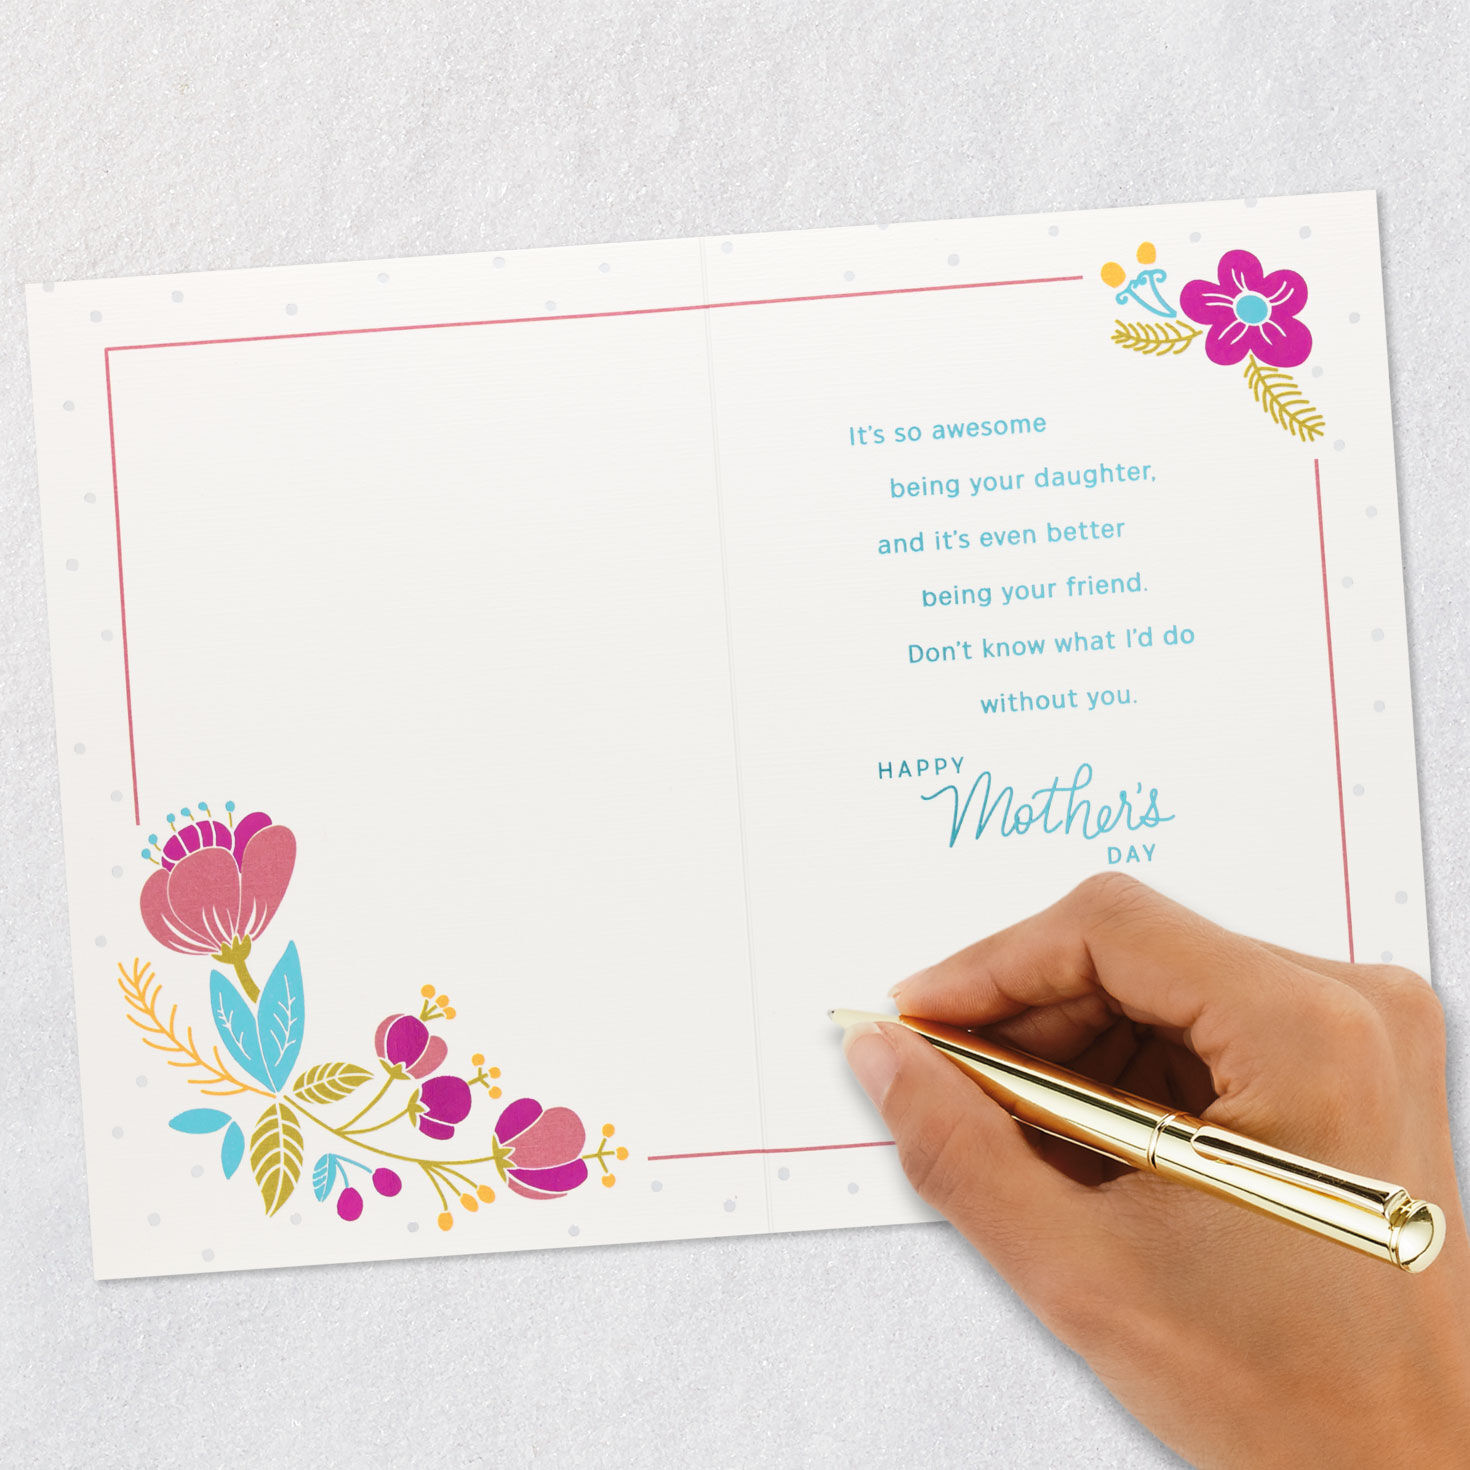 It's so awesome
being your daughter,
and it's even better
being your friend.
Don't know what I'd do
without you.
HAPPY
Mother's
DAY